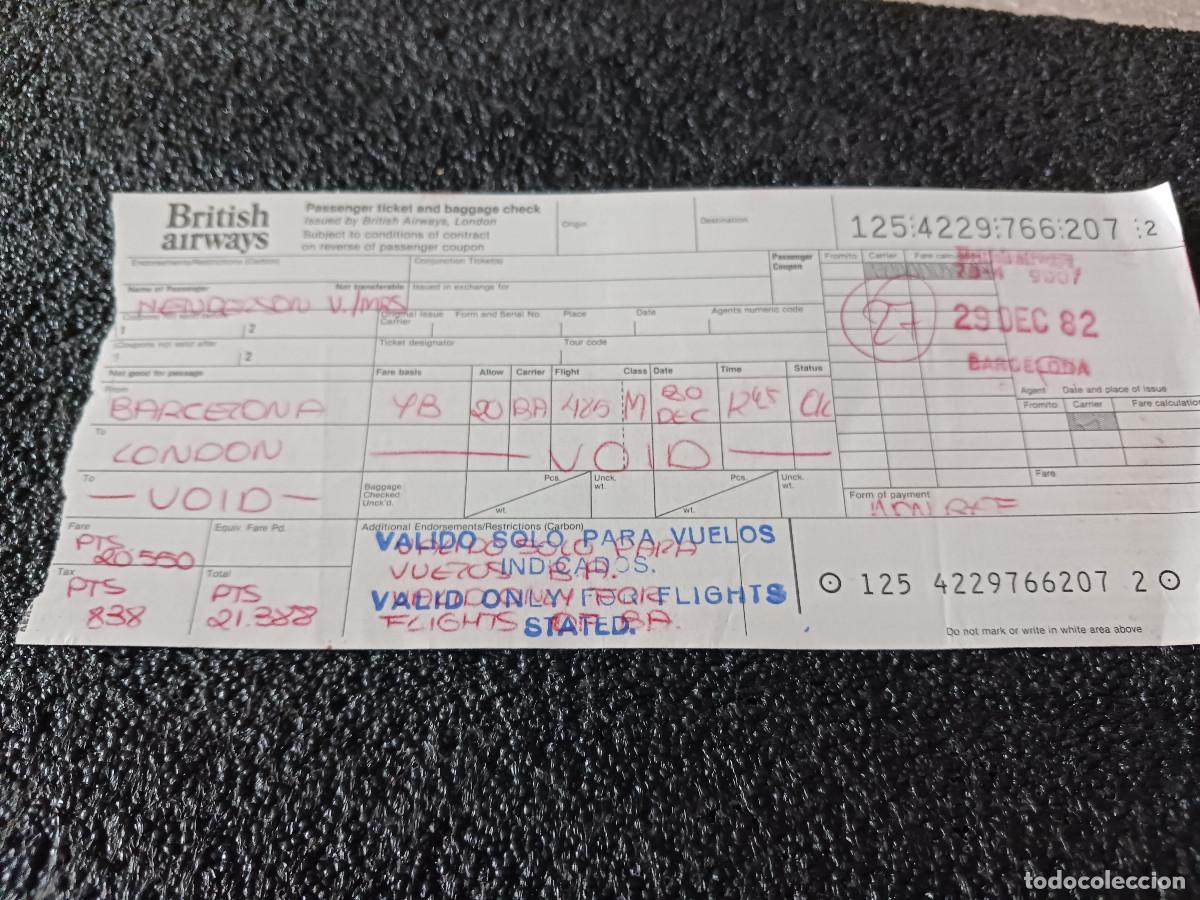 British airways
Passenger ticket and baggage check
Issued by British Airways, London
Subject to conditions of contract
on reverse of passenger coupon
Origin
Destination
125:4229:766:207 :2
Endorsements/Restrictions (Carbon)
Conjunction Ticket(s)
Passenger Coupon
From/to Carrier Fare calculation
British airways
9007
Name of Passenger Not transferable
Issued in exchange for
HENDERSON V./MRS
Original Issue Form and Serial No. Place Date Agents numeric code
Carrier
1 2
27
29 DEC 82
BARCELONA
Coupons not valid after
Ticket designator Tour code
1 2
Not good for passage
Fare basis Allow Carrier Flight Class Date Time Status
Agent Date and place of issue
From/to Carrier Fare calculation
From
BARCELONA YB 20 BA 485 M 30 DEC 1245 OK
To
LONDON VOID
To
VOID
Baggage Checked Unck'd. Pcs. wt. Unck. wt. Pcs. wt. Unck. wt.
Fare
Form of payment
Fare
PTS 20.550
Equiv. Fare Pd.
Additional Endorsements/Restrictions (Carbon)
VALIDO SOLO PARA VUELOS
INDICADOS.
VALID ONLY FOR FLIGHTS
STATED.
VALIDO SOLO PARA
VUELOS BA.
VALID ONLY FOR
FLIGHTS OF BA.
Tax
PTS 838
Total
PTS 21.388
125 4229766207 2
Do not mark or write in white area above
todocoleccion